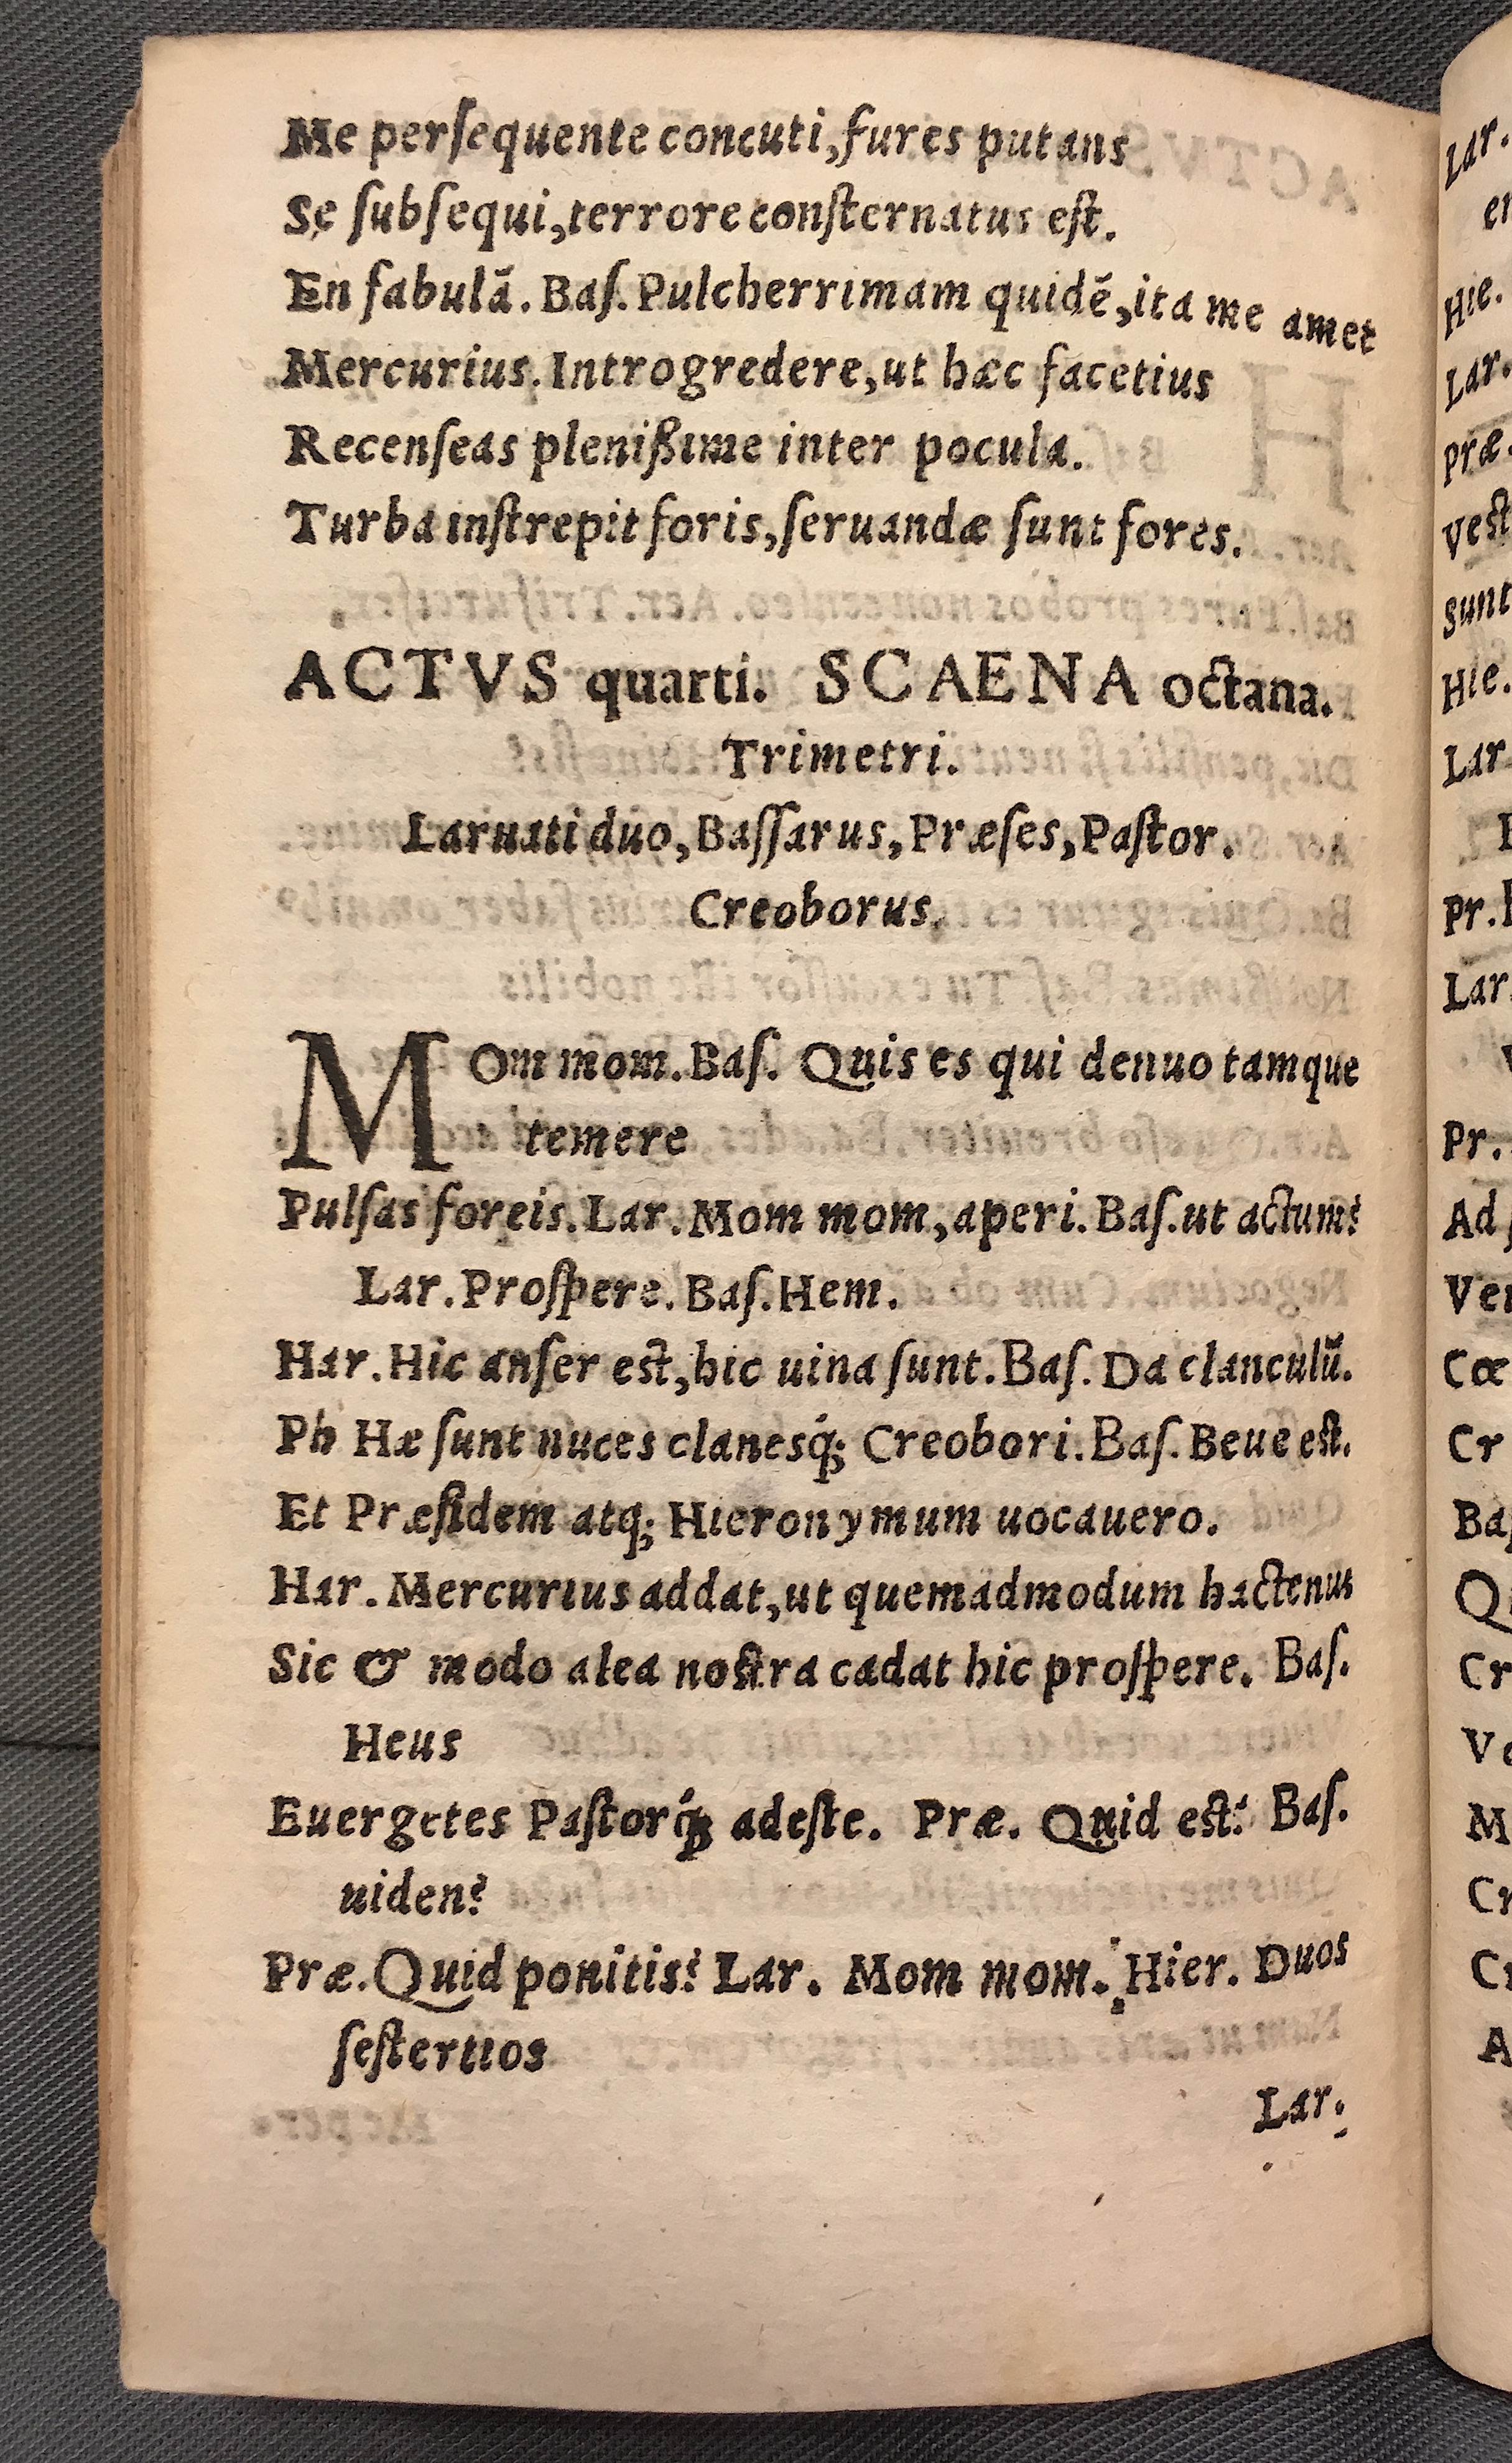 Me perſequente concuti, fures putans
Se ſubſequi, terrore conſternatus eſt.
En fabulã. Baſ. Pulcherrimam quidẽ, ita me amet
Mercurius. Introgredere, ut hæc facetius
Recenſeas pleniſsime inter pocula.
Turba inſtrepit foris, ſeruandæ ſunt fores.
ACTVS quarti. SCAENA octana.
Trimetri.
Laruati duo, Baſſarus, Præſes, Paſtor.
Creoborus.
MOm mom. Baſ. Quis es qui denuo tamque
temere
Pulſas foreis. Lar. Mom mom, aperi. Baſ. ut actum?
Lar. Proſpere. Baſ. Hem.
Har. Hic anſer eſt, hic uina ſunt. Baſ. Da clanculũ.
Ph Hæ ſunt nuces clanesq́; Creobori. Baſ. Beue eſt.
Et Præſidem atq; Hieronymum uocauero.
Har. Mercurius addat, ut quemadmodum hactenus
Sic & modo alea noſtra cadat hic proſpere. Baſ.
Heus
Euergetes Paſtorq́; adeſte. Præ. Quid eſt? Baſ.
uiden?
Præ. Quid ponitis? Lar. Mom mom. Hier. Duos
ſeſtertios
Lar.
Lar.
Hie.
Lar.
Præ.
Veſt
Sunt
Hie.
Lar
Pr.
Lar.
Pr.
Ad
Ver
Cœ
Cr
Baſ
Cr
M
Cr